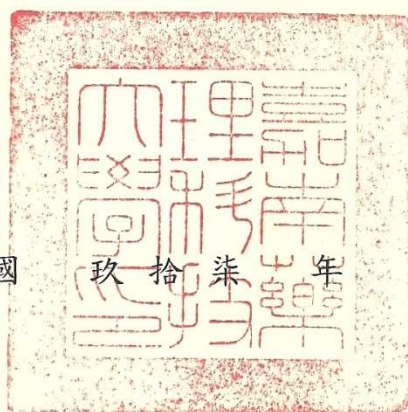 嘉南藥
理科技
大學印
國 玖拾柒 年